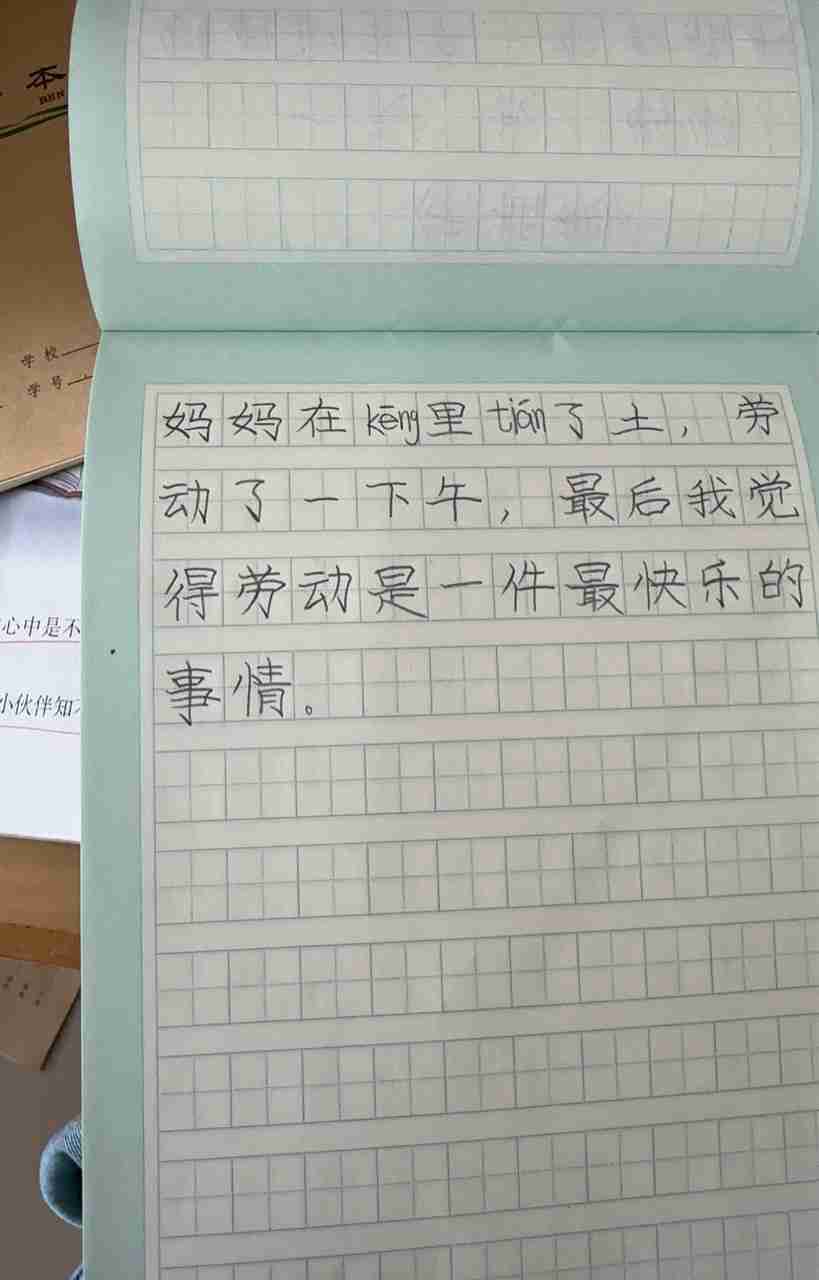 本
BEN
学校
学号
心中是不
小伙伴知
妈妈在kēng里tián了土，劳
动了一下午，最后我觉
得劳动是一件最快乐的
事情。